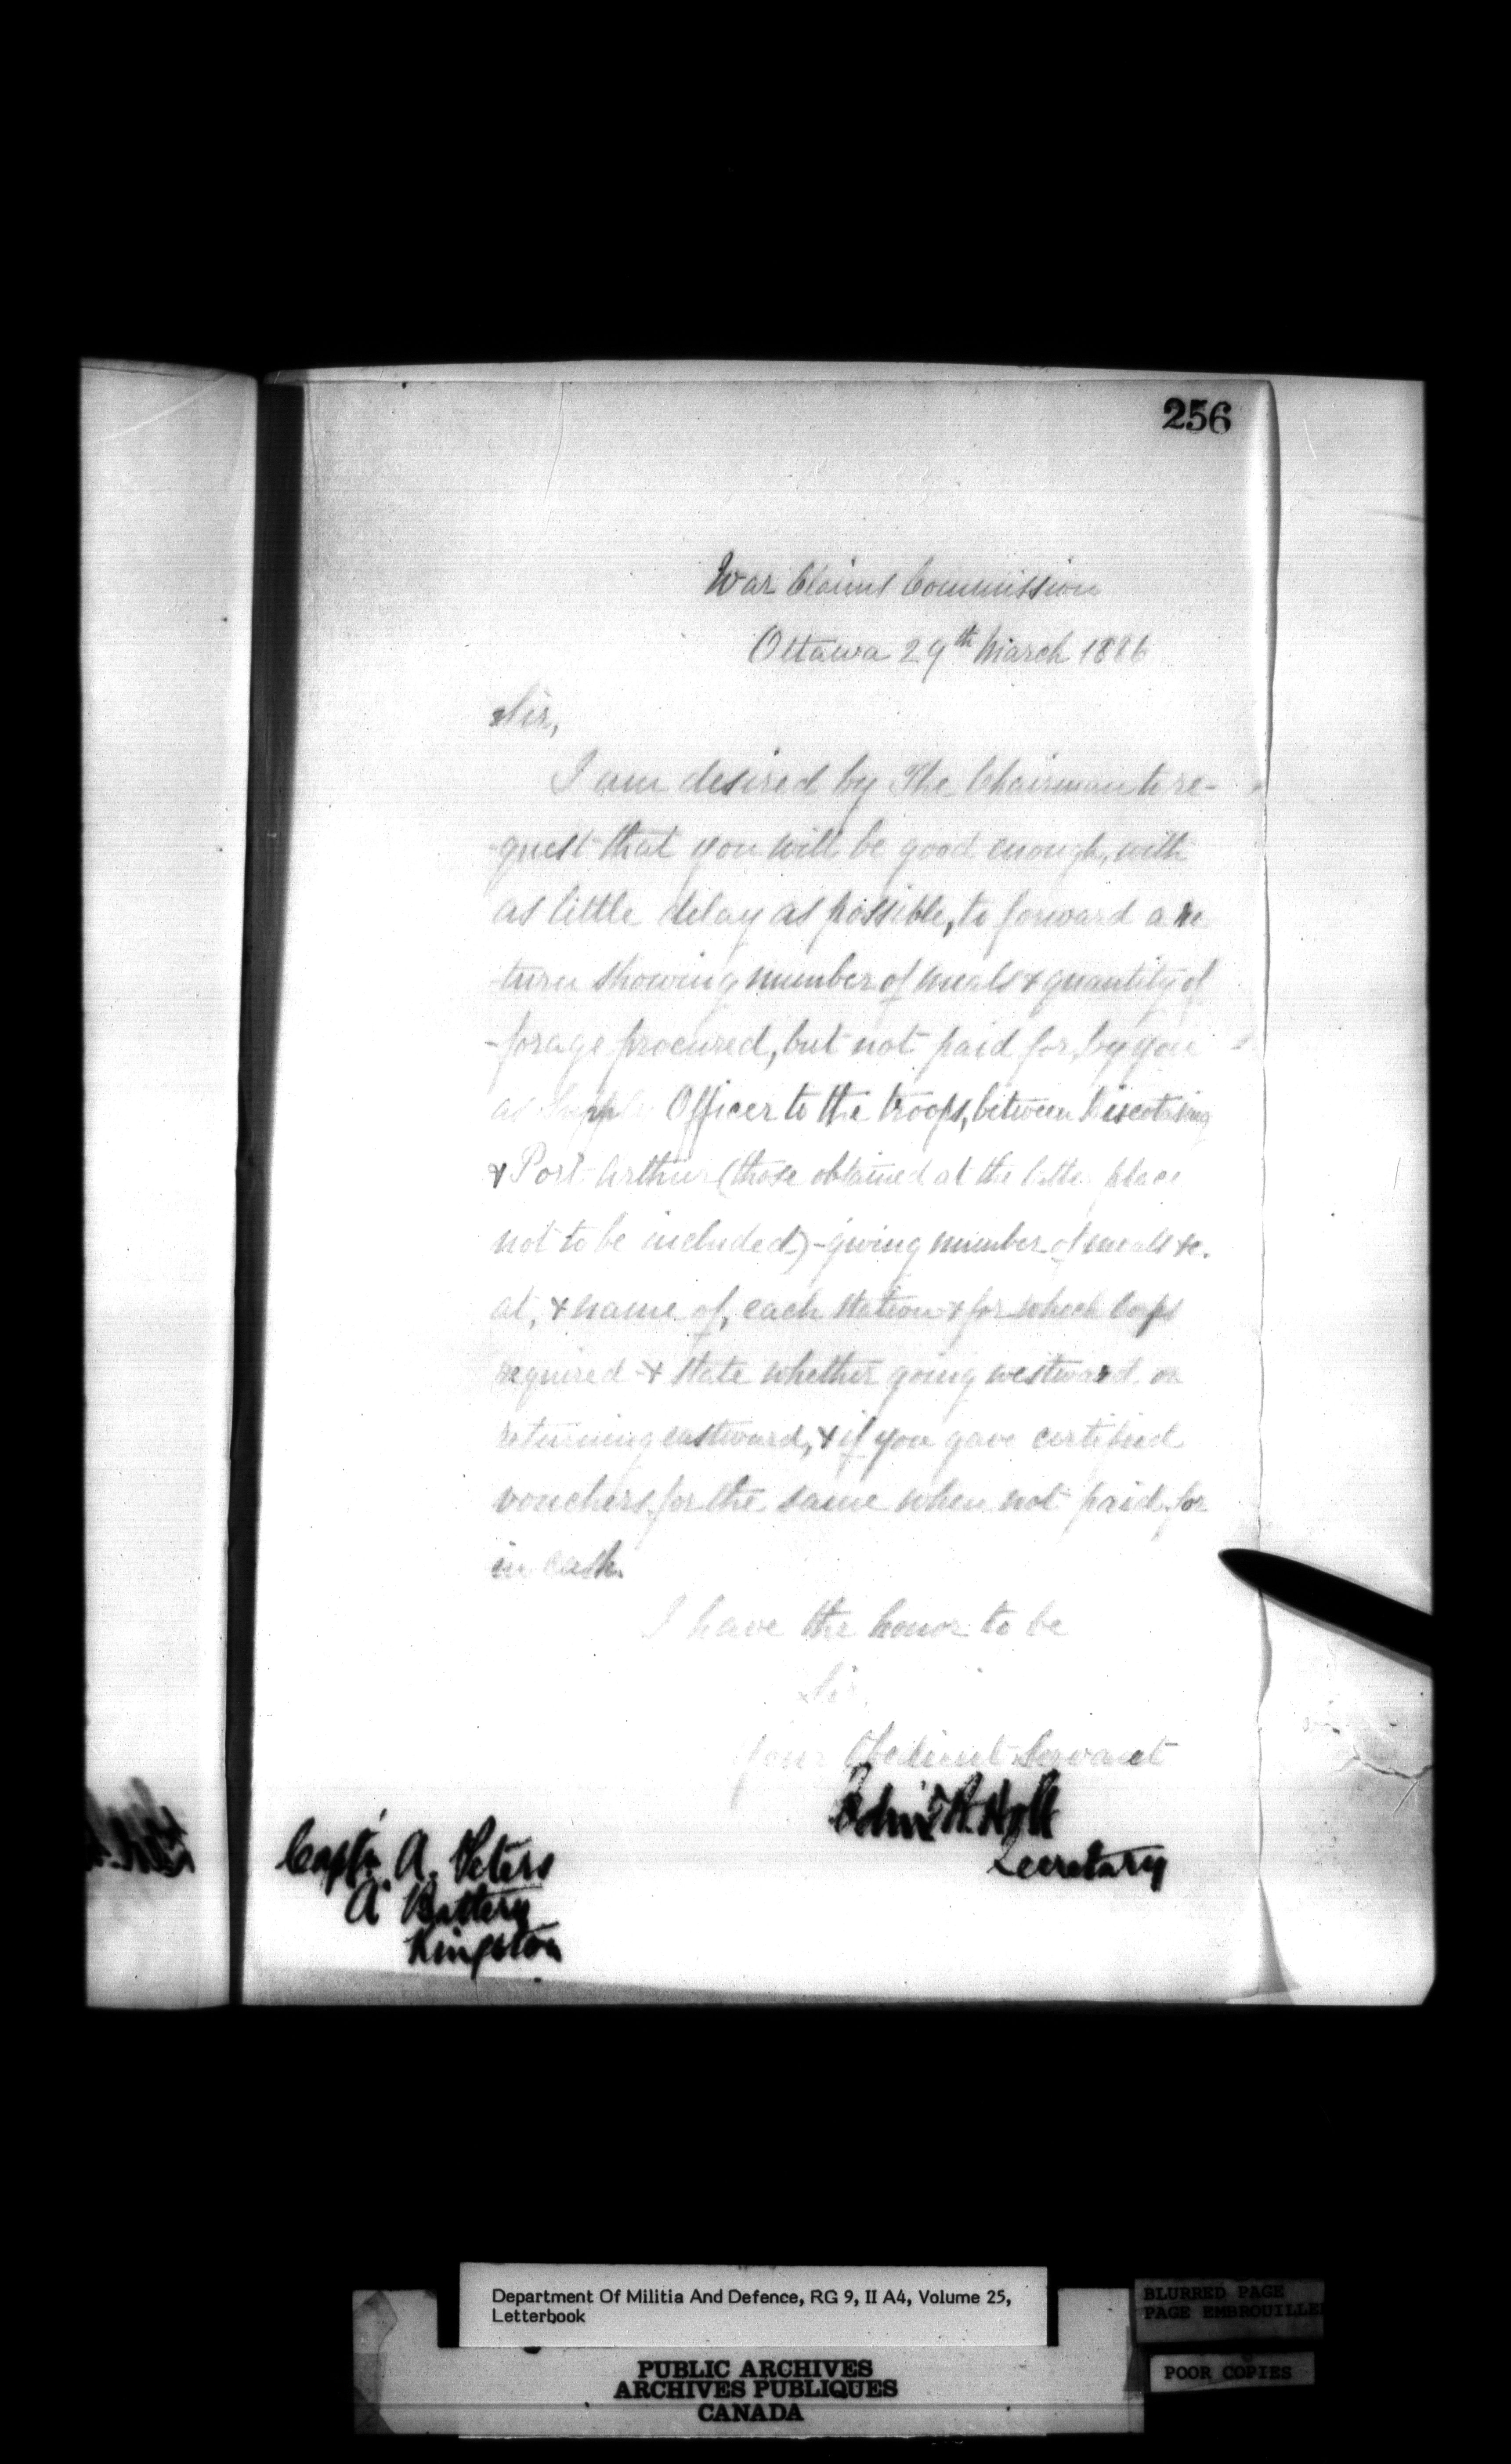 256
War Claims Commission
Ottawa 29th March 1886
Sir,
I am desired by The Chairman to re-
-quest that you will be good enough, with
as little delay as possible, to forward a re
-turn showing number of meals & quantity of
-forage procured, but not paid for, by you
as Supply Officer to the troops, between Biscotasing
& Port Arthur (those obtained at the latter place
not to be included) - giving number of meals &c.
at, & name of, each station & for which Corps
required - & state whether going westward or
returning eastward, & if you gave certified
vouchers for the same when not paid for
in cash.
I have the honor to be
Sir,
Your Obedient Servant
Holt
Secretary
Capt. A. Peters
A Battery
Kingston
Department Of Militia And Defence, RG 9, II A4, Volume 25,
Letterbook
BLURRED PAGE
PAGE EMBROUILLE
PUBLIC ARCHIVES
ARCHIVES PUBLIQUES
CANADA
POOR COPIES